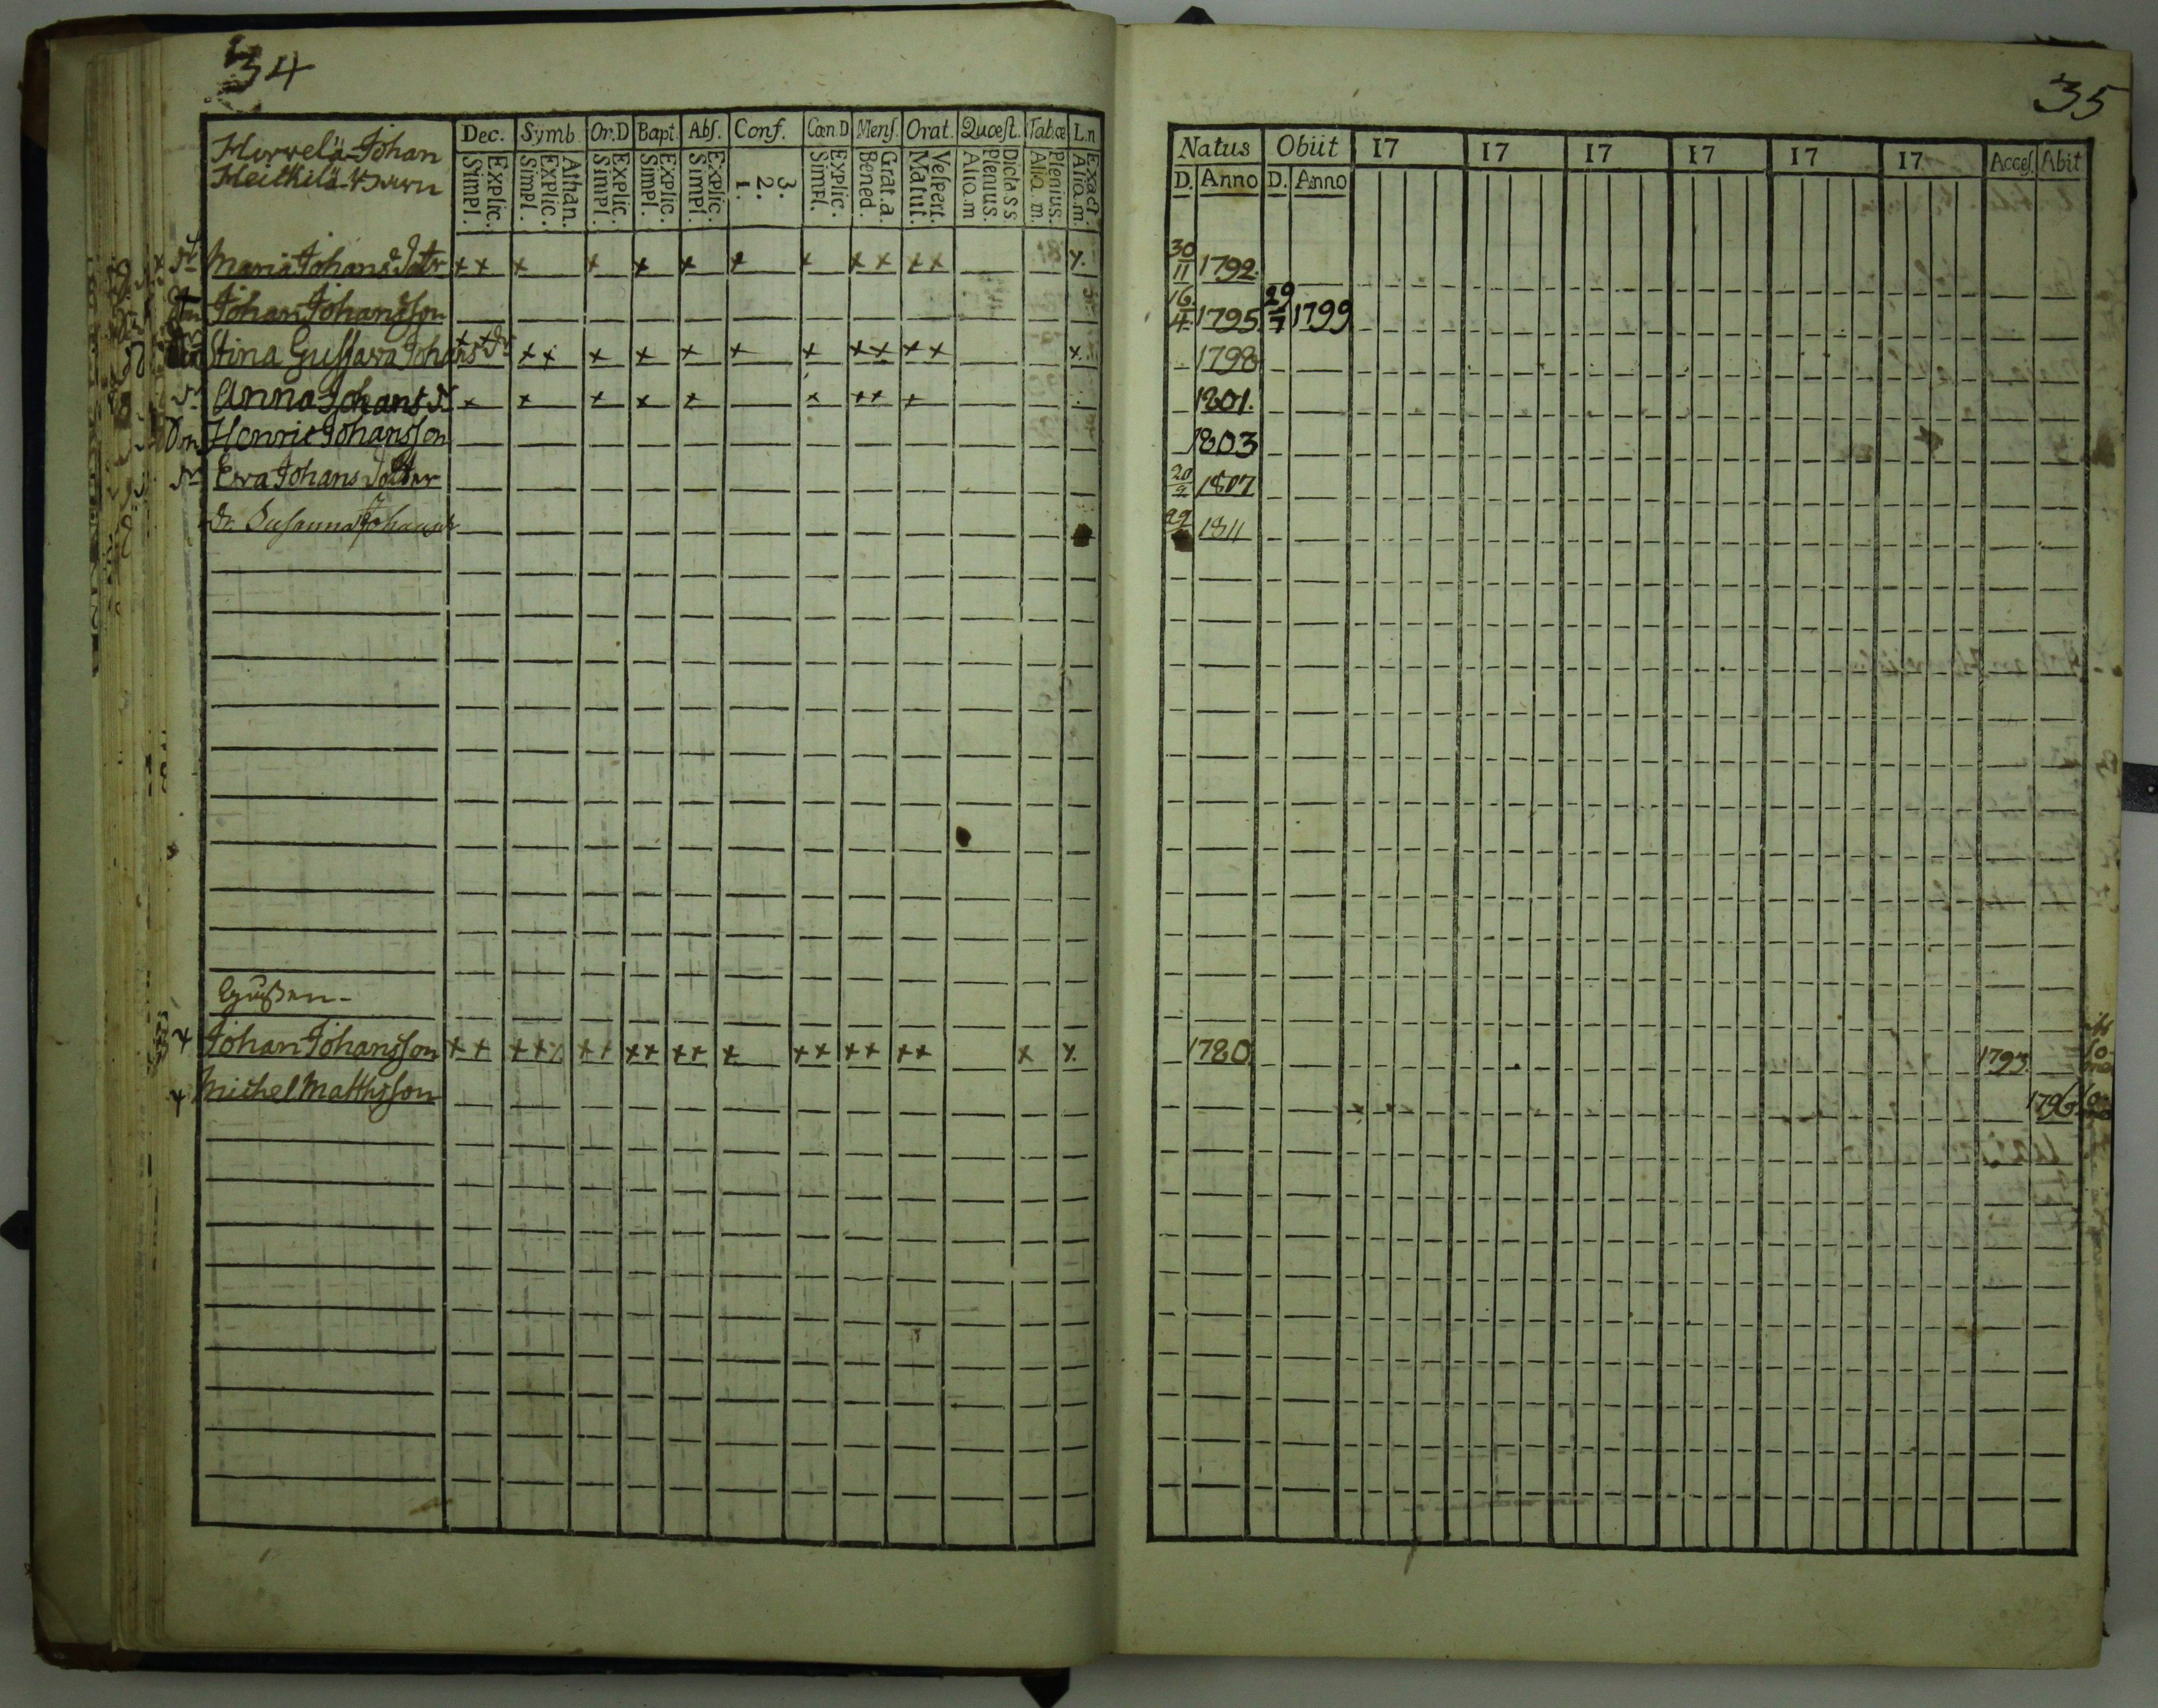 34
Hirvelä Johan
Heikkilä
Dec. Symb. Or.D Bapt. Abſ. Conf. Cœn.D Menſ. Orat. Quœſt. Tab.œ L.n
Explic. Simpl. Athan. Explic. Simpl. Explic. Simpl. Explic. Simpl. Explic. Simpl. 3. 2. 1. Explic. Simpl. Grat.a. Bened. Veſpert. Matut. Dicta S.S. Plenius. Alio.m Plenius. Alio m. Exact. Alio.m.
Dr Maria Johans Dotr x x x x x x x x x x x x x
Son Johan Johansson
Stina Gustava Johans Dr x x x x x x x x x x x x x x
Dr Anna Johans D x x x x x x x x x
Son Henric Johansson
Dr Eva Johans Dotter
Dr Susanna Johans
Gussen
Johan Johansson x x x x x x x x x x x x x x x x x x x x
Michel Mattsson
35
Natus Obiit 17 17 17 17 17 17 Acceſ. Abit
D. Anno D. Anno
30/11 1792.
16/4 1795 29/7 1799
1798
1801.
1803
20/9 1807
29 1811
1780 1793
1796